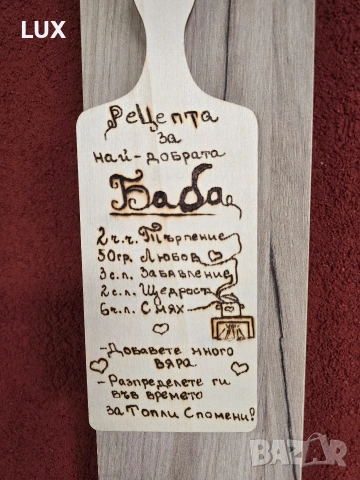 LUX
Рецепта
за
най-добрата
Баба
2 ч.ч. Търпение
50гр. Любов
3 с.л. Забавление
2 с.л. Щедрост
6 ч.л. Смях
- Добавете много
вяра.
- Разпределете ги
във времето
за Топли Спомени!
BAZAR
bg